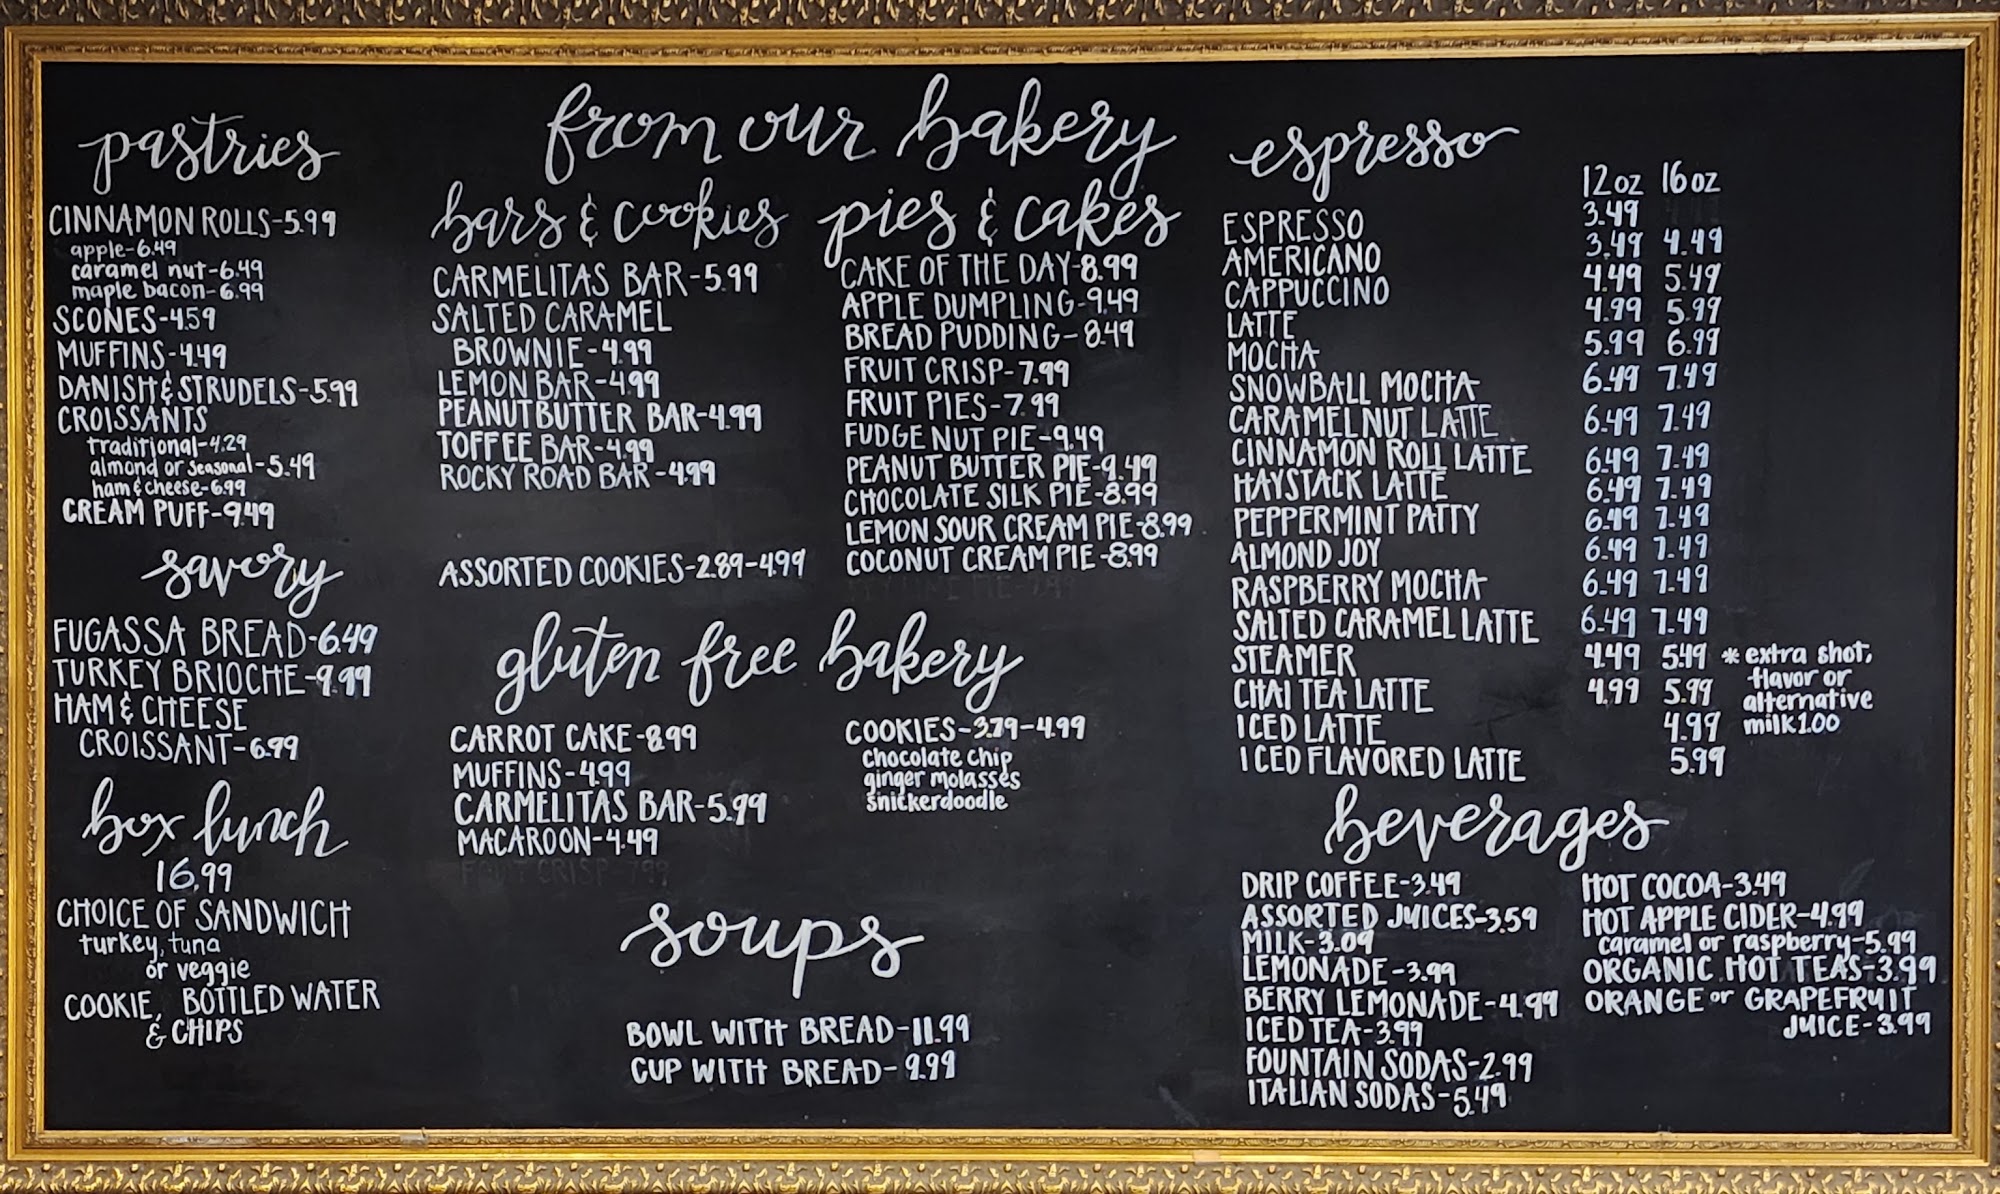 pastries
CINNAMON ROLLS-5.99
apple-6.49
caramel nut-6.49
maple bacon-6.99
SCONES-4.59
MUFFINS-4.49
DANISH & STRUDELS-5.99
CROISSANTS
traditional-4.29
almond or seasonal-5.49
ham & cheese-6.99
CREAM PUFF-9.49
savory
FUGASSA BREAD-6.49
TURKEY BRIOCHE-9.99
HAM & CHEESE
CROISSANT-6.99
box lunch
16.99
CHOICE OF SANDWICH
turkey, tuna
or veggie
COOKIE, BOTTLED WATER
& CHIPS
from our bakery
bars & cookies
CARMELITAS BAR-5.99
SALTED CARAMEL
BROWNIE-4.99
LEMON BAR-4.99
PEANUT BUTTER BAR-4.99
TOFFEE BAR-4.99
ROCKY ROAD BAR-4.99
ASSORTED COOKIES-2.89-4.99
pies & cakes
CAKE OF THE DAY-8.99
APPLE DUMPLING-9.49
BREAD PUDDING-8.49
FRUIT CRISP-7.99
FRUIT PIES-7.99
FUDGE NUT PIE-9.49
PEANUT BUTTER PIE-9.49
CHOCOLATE SILK PIE-8.99
LEMON SOUR CREAM PIE-8.99
COCONUT CREAM PIE-8.99
gluten free bakery
CARROT CAKE-8.99
MUFFINS-4.99
CARMELITAS BAR-5.99
MACAROON-4.49
COOKIES-3.79-4.99
chocolate chip
ginger molasses
snickerdoodle
soups
BOWL WITH BREAD-11.99
CUP WITH BREAD-9.99
espresso
12 oz 16 oz
ESPRESSO 3.49
AMERICANO 3.49 4.49
CAPPUCCINO 4.49 5.49
LATTE 4.99 5.99
MOCHA 5.99 6.99
SNOWBALL MOCHA 6.49 7.49
CARAMEL NUT LATTE 6.49 7.49
CINNAMON ROLL LATTE 6.49 7.49
HAYSTACK LATTE 6.49 7.49
PEPPERMINT PATTY 6.49 7.49
ALMOND JOY 6.49 7.49
RASPBERRY MOCHA 6.49 7.49
SALTED CARAMEL LATTE 6.49 7.49
STEAMER 4.49 5.49
CHAI TEA LATTE 4.99 5.99
ICED LATTE 4.99
ICED FLAVORED LATTE 5.99
* extra shot,
flavor or
alternative
milk 1.00
beverages
DRIP COFFEE-3.49
ASSORTED JUICES-3.59
MILK-3.09
LEMONADE-3.99
BERRY LEMONADE-4.99
ICED TEA-3.99
FOUNTAIN SODAS-2.99
ITALIAN SODAS-5.49
HOT COCOA-3.49
HOT APPLE CIDER-4.99
caramel or raspberry-5.99
ORGANIC HOT TEAS-3.99
ORANGE or GRAPEFRUIT
JUICE-3.99